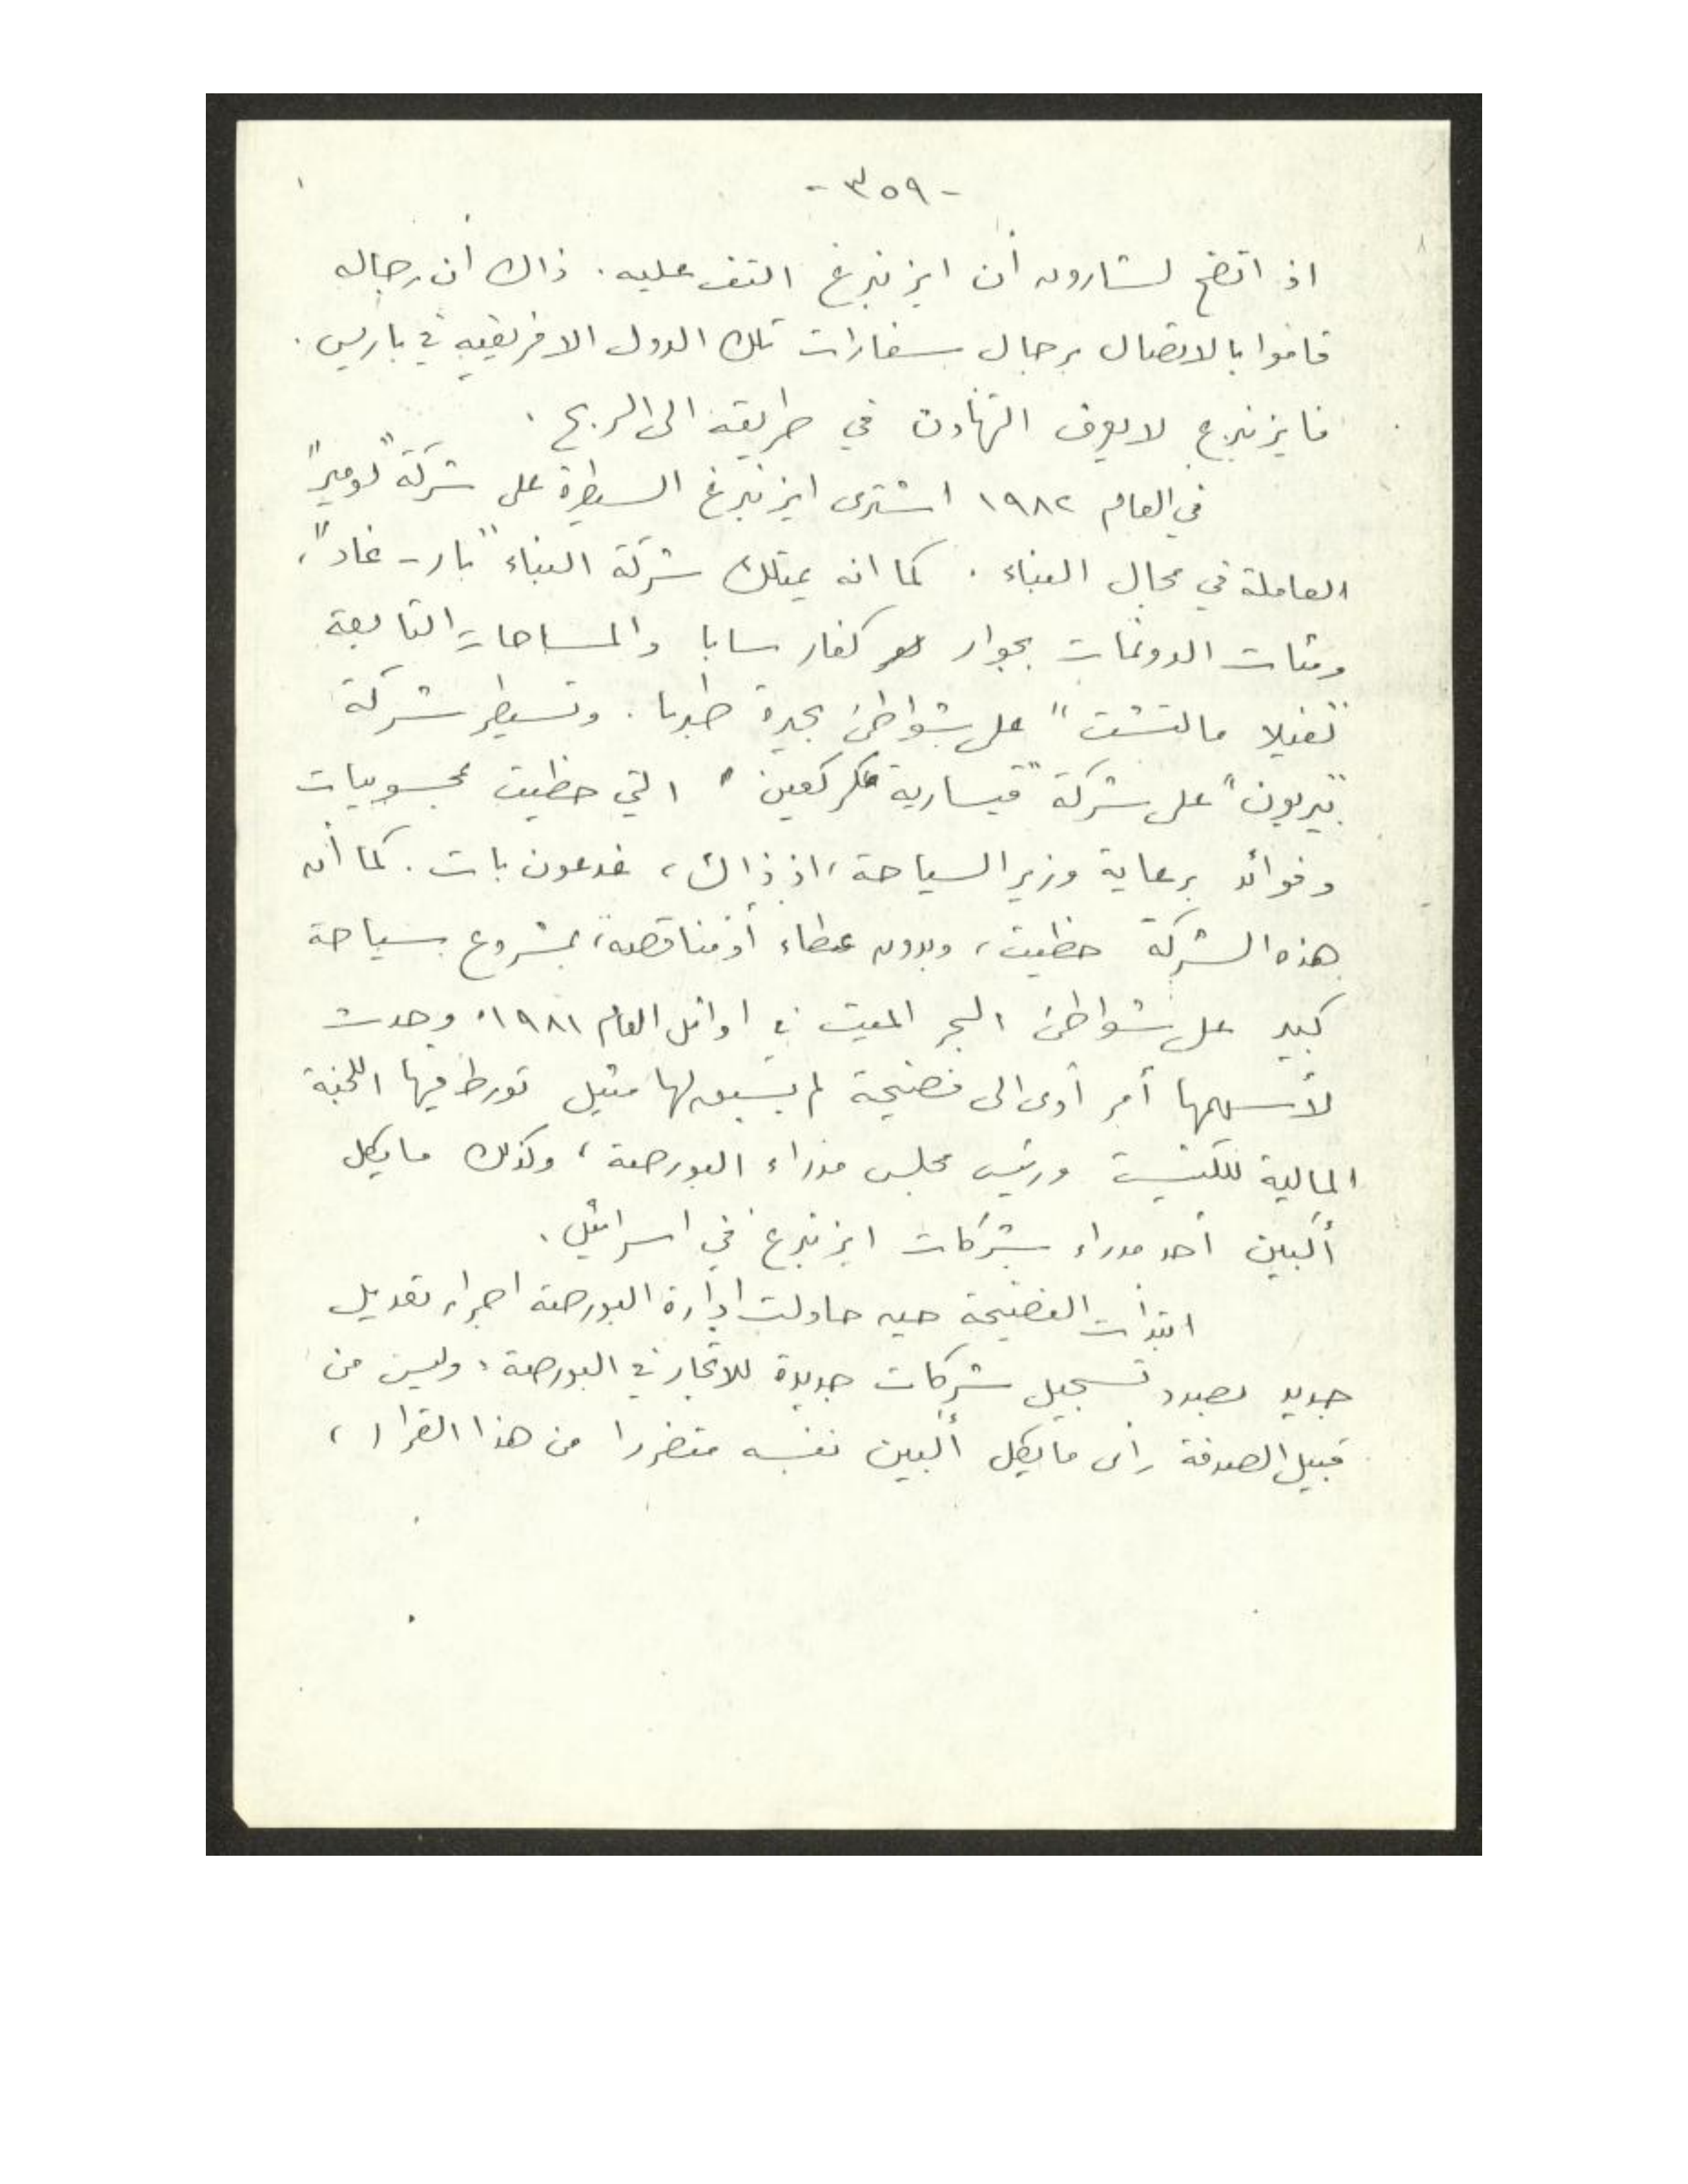 - ٣٥٩ -
اذ اتضح لشارون أن ايزنبرغ التف عليه. ذاك أن رجاله
قاموا بالاتصال برجال سفارات تلك الدول الافريقية في باريس.
فايزنبرغ لا يعرف التهاون في طريقه الى الربح.
في العام ١٩٨٢ اشترى ايزنبرغ السيطرة على شركة "لومير"
العاملة في مجال البناء. كما انه يمتلك شركة البناء "بار - غاد"،
ومئات الدونمات بجوار كفار سابا والمساحات التابعة
"لفيلا مالتشت" على شواطئ بحيرة طبريا. وتسيطر شركة
"تيريون" على شركة "قيسارية كعين" التي حظيت بمحسوبيات
وفوائد برعاية وزير السياحة، اذ ذاك، غدعون بات. كما أن
هذه الشركة حظيت، وبدون عطاء أو مناقصة، بمشروع سياحة
كبير على شواطئ البحر الميت في اوائل العام ١٩٨١. وحدث
لأسهمها أمر أدى الى فضيحة لم يسبق لها مثيل تورط فيها اللجنة
المالية للكنيست ورئيس مجلس مدراء البورصة، وكذلك مايكل
ألبين أحد مدراء شركات ايزنبرغ في اسرائيل.
ابتدأت الفضيحة حين حاولت ادارة البورصة اجراء تعديل
جديد بصدد تسجيل شركات جديدة للاتجار في البورصة، وليس من
قبيل الصدفة رأى مايكل ألبين نفسه متضررا من هذا القرار،